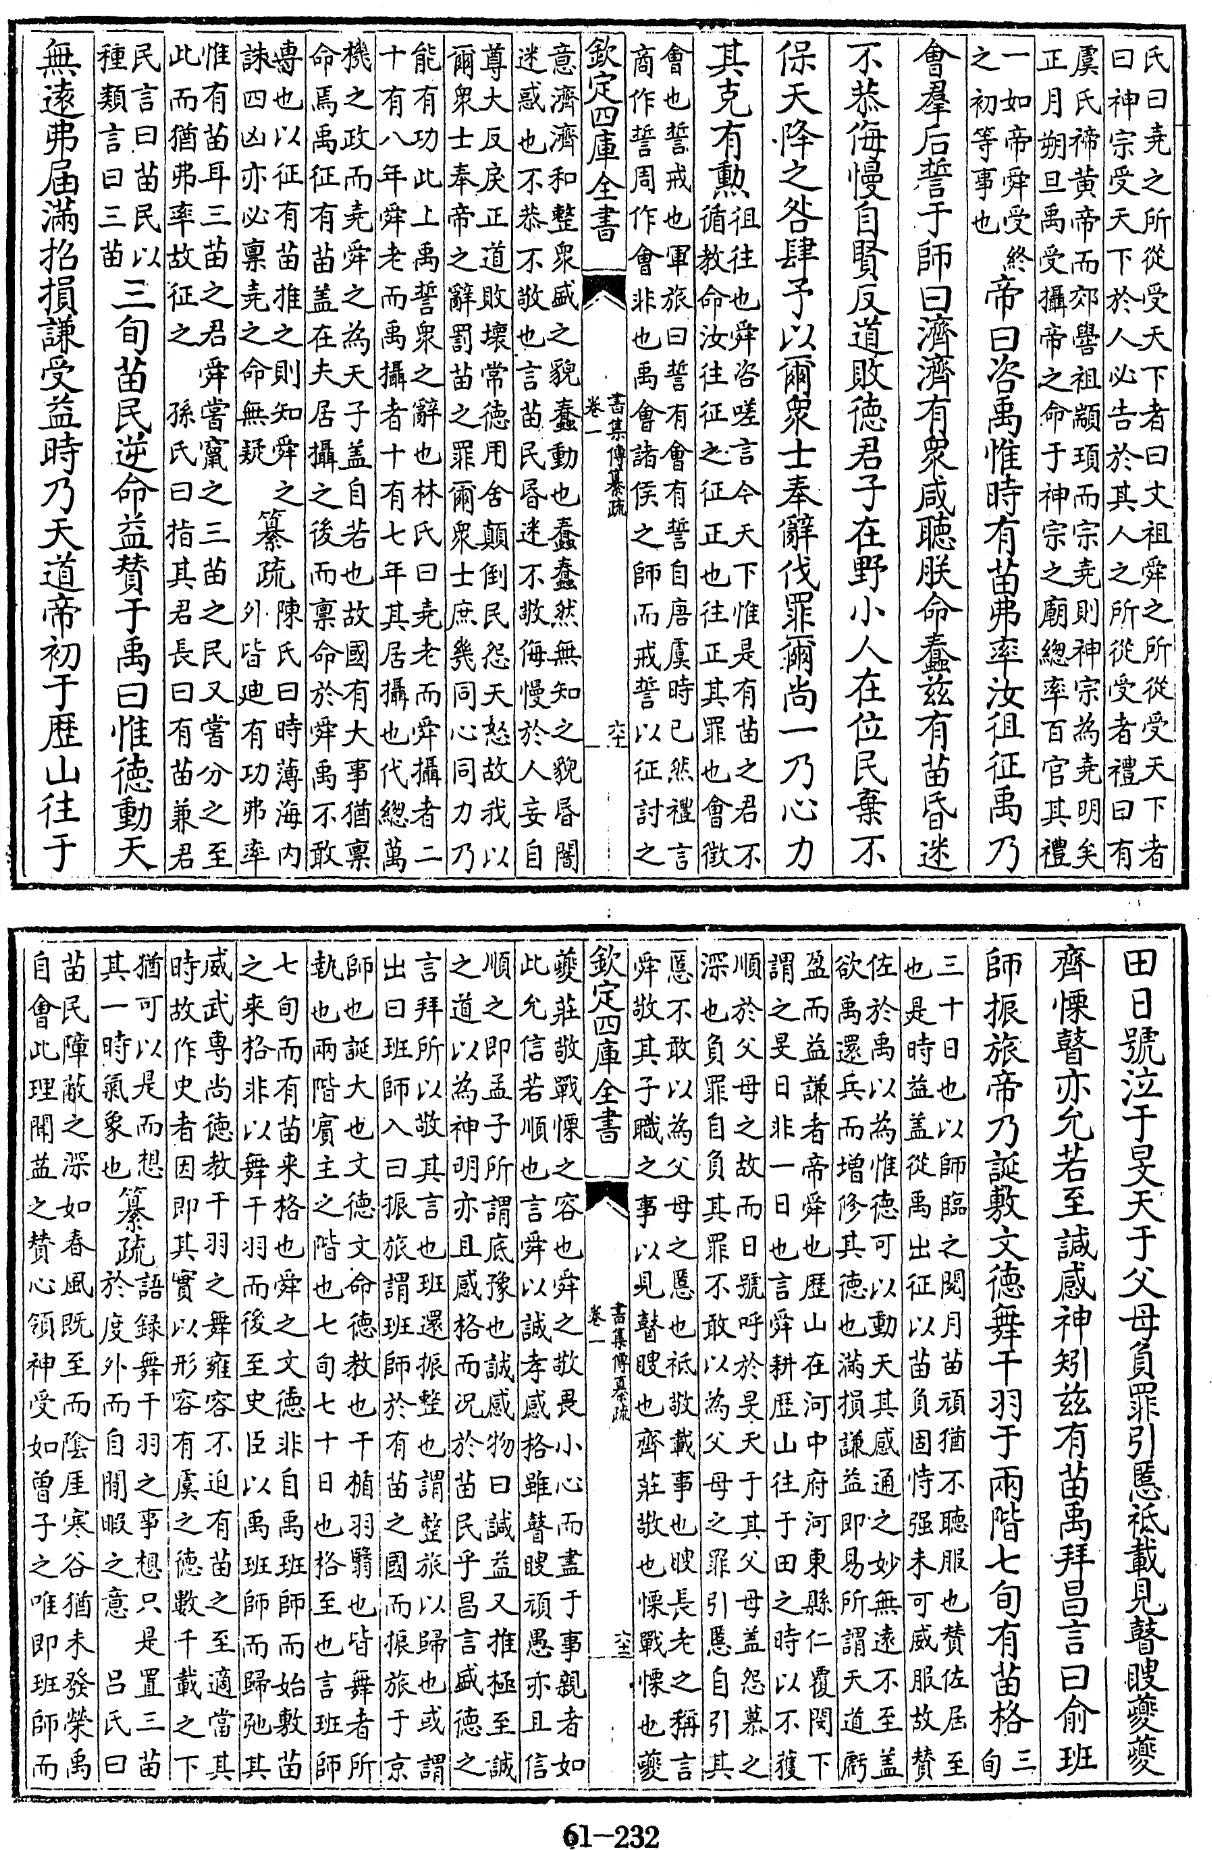 氏曰堯之所從受天下者曰文祖舜之所從受天下者
曰神宗受天下於人必告於其人之所從受者禮曰有
虞氏禘黄帝而郊嚳祖顓頊而宗堯則神宗為堯明矣
正月朔旦禹受攝帝之命于神宗之廟總率百官其禮
一如帝舜受終
之初等事也
帝曰咨禹惟時有苗弗率汝徂征禹乃
會羣后誓于師曰濟濟有衆咸聽朕命蠢兹有苗昏迷
不恭侮慢自賢反道敗德君子在野小人在位民棄不
保天降之咎肆予以爾衆士奉辭伐罪爾尚一乃心力
其克有勲
徂往也舜咨嗟言今天下惟是有苗之君不
循教命汝往征之征正也往正其罪也會徵
會也誓戒也軍旅曰誓有會有誓自唐虞時已然禮言
商作誓周作會非也禹會諸侯之師而戒誓以征討之
欽定四庫全書
書集傳纂疏
卷一
六十一
意濟濟和整衆盛之貌蠢動也蠢蠢然無知之貌昏闇
迷惑也不恭不敬也言苗民昏迷不敬侮慢於人妄自
尊大反戾正道敗壞常德用舍顛倒民怨天怒故我以
爾衆士奉帝之辭罰苗之罪爾衆士庶幾同心同力乃
能有功此上禹誓衆之辭也林氏曰堯老而舜攝者二
十有八年舜老而禹攝者十有七年其居攝也代總萬
機之政而堯舜之為天子蓋自若也故國有大事猶禀
命焉禹征有苗蓋在夫居攝之後而禀命於舜禹不敢
專也以征有苗推之則知舜之
誅四凶亦必禀堯之命無疑
纂疏
陳氏曰時薄海内
外皆迪有功弗率
惟有苗耳三苗之君舜嘗竄之三苗之民又嘗分之至
此而猶弗率故征之 孫氏曰指其君長曰有苗兼君
民言曰苗民以
種類言曰三苗
三旬苗民逆命益賛于禹曰惟德動天
無遠弗届滿招損謙受益時乃天道帝初于歴山往于
田日號泣于旻天于父母負罪引慝祗載見瞽瞍夔夔
齊慄瞽亦允若至諴感神矧兹有苗禹拜昌言曰俞班
師振旅帝乃誕敷文德舞干羽于兩階七旬有苗格
三
旬
三十日也以師臨之閱月苗頑猶不聽服也賛佐届至
也是時益蓋從禹出征以苗負固恃强未可威服故賛
佐於禹以為惟德可以動天其感通之妙無遠不至蓋
欲禹還兵而增修其德也滿損謙益即易所謂天道虧
盈而益謙者帝舜也歴山在河中府河東縣仁覆閔下
謂之旻日非一日也言舜耕歴山往于田之時以不獲
順於父母之故而日號呼於旻天于其父母蓋怨慕之
深也負罪自負其罪不敢以為父母之罪引慝自引其
慝不敢以為父母之慝也祗敬載事也瞍長老之稱言
舜敬其子職之事以見瞽瞍也齊莊敬也慄戰慄也夔
欽定四庫全書
書集傳纂疏
卷一
六十二
夔莊敬戰慄之容也舜之敬畏小心而盡于事親者如
此允信若順也言舜以誠孝感格雖瞽瞍頑愚亦且信
順之即孟子所謂底豫也諴感物曰諴益又推極至諴
之道以為神明亦且感格而況於苗民乎昌言盛德之
言拜所以敬其言也班還振整也謂整旅以歸也或謂
出曰班師入曰振旅謂班師於有苗之國而振旅于京
師也誕大也文德文命德教也干楯羽翳也皆舞者所
執也兩階賓主之階也七旬七十日也格至也言班師
七旬而有苗来格也舜之文德非自禹班師而始敷苗
之来格非以舞干羽而後至史臣以禹班師而歸弛其
威武專尚德教干羽之舞雍容不迫有苗之至適當其
時故作史者因即其實以形容有虞之德數千載之下
猶可以是而想
其一時氣象也
纂疏
語録舞干羽之事想只是置三苗
於度外而自閒暇之意 吕氏曰
苗民障蔽之深如春風既至而陰厓寒谷猶未發榮禹
自會此理聞益之賛心領神受如曾子之唯即班師而
61-232